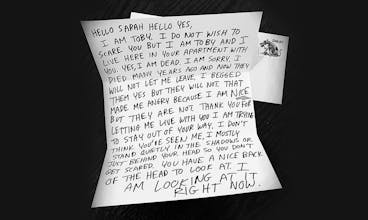 HELLO SARAH HELLO YES,
I AM TOBY. I DO NOT WISH TO
SCARE YOU BUT I AM TOBY AND I
LIVE HERE IN YOUR APARTMENT WITH
YOU. YES, I AM DEAD. I AM SORRY, I
DIED MANY YEARS AGO AND NOW THEY
WILL NOT LET ME LEAVE. I BEGGED
THEM YES BUT THEY WILL NOT THAT
MADE ME ANGRY BECAUSE I AM NICE
BUT THEY ARE NOT. THANK YOU FOR
LETTING ME LIVE WITH YOU I AM TRYING
TO STAY OUT OF YOUR WAY. I DON'T
THINK YOU'VE SEEN ME, I MOSTLY
STAND QUIETLY IN THE SHADOWS OR
JUST BEHIND YOUR HEAD SO YOU DON'T
GET SCARED. YOU HAVE A NICE BACK
OF THE HEAD TO LOOK AT. I
AM LOOKING AT IT
RIGHT NOW.